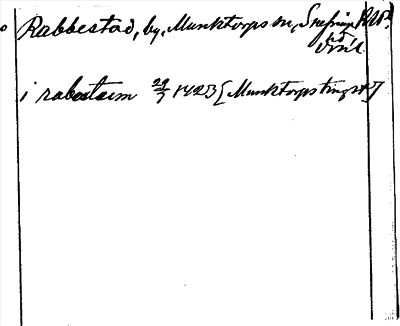 Rabbestad, by, Munktorps sn, Snefringe hd
i rabastum 29/7 1423 [Munktorps tingst.]